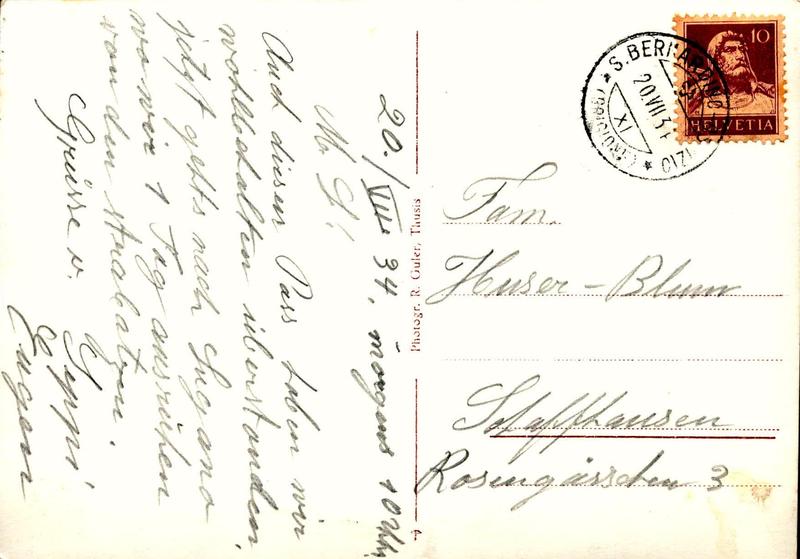 20./VIII 34, morgens 10 Uhr.
M. L!
Auch diesen Pass haben wir
wohlbehalten überstanden,
jetzt gehts nach Lugano
wo wir 1 Tag ausruhen
von den Strapazen.
Grüsse v. Seppi
Eugen
Photogr. R. Guler, Thusis
S. BERNARDINO
20.VII.34
XI
(GRIGIONI)
10
HELVETIA
Fam.
Huser-Blum
Schaffhausen
Rosengässchen 3